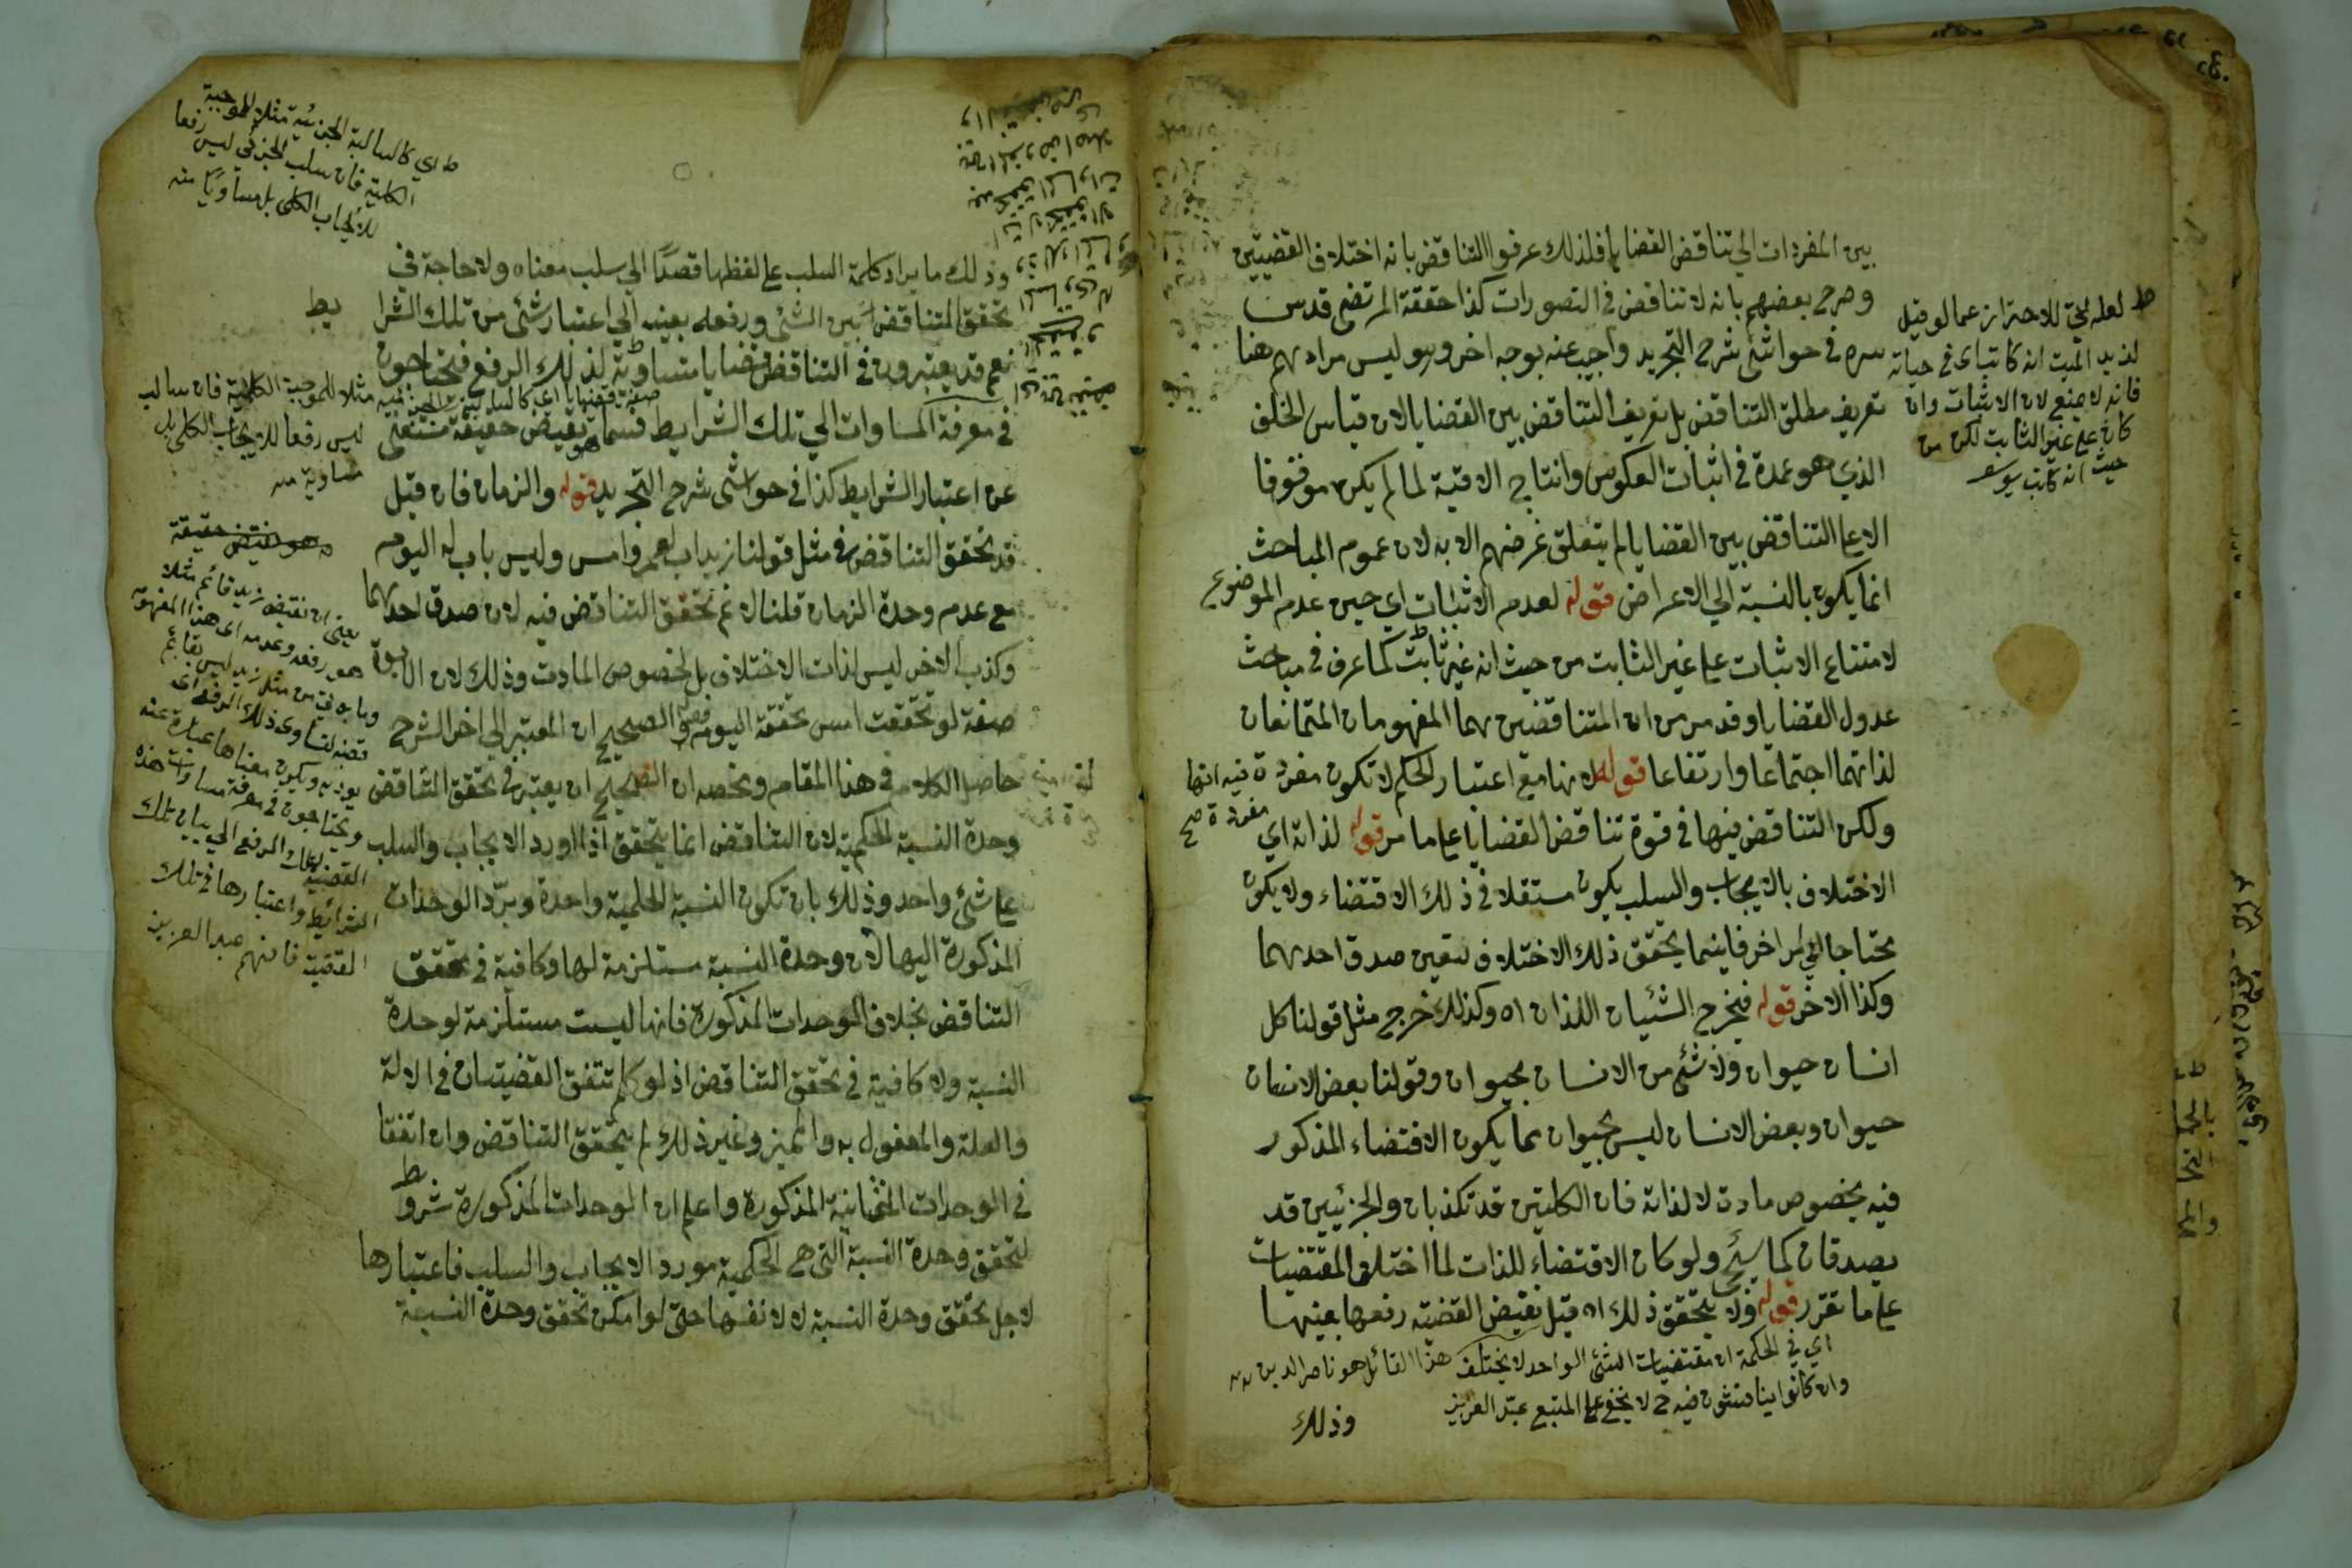 بين المفردات الى تناقض القضايا فلذلك عرفوا التناقض بانه اختلاف القضيتين
وصرح بعضهم بانه لا تناقض في التصورات كذا حققه المرتضى قدس
سره في حواشي شرح التجريد واجيب عنه بوجه اخر وهو ليس مرادهم هنا
تعريف مطلق التناقض بل تعريف التناقض بين القضايا لان قياس الخلف
الذي هو عمدة في اثبات العكوس وانتاج الاقيسة لما لم يكن موقوفا
الا على التناقض بين القضايا لم يتعلق غرضهم الا به لان عموم المباحث
انما يكون بالنسبة الى الاغراض قوله لعدم الاثبات اي حين عدم الموضوع
لامتناع الاثبات على غير الثابت من حيث انه غير ثابت كما عرف في مباحث
عدول القضايا وقد مر من ان المتناقضين هما المفهومان المتمانعان
لذاتهما اجتماعا وارتفاعا قوله لانها مع اعتبار الحكم لا تكون مفردة فيه انها
ولكن التناقض فيها في قوة تناقض القضايا على ما مر قوله لذاته اي
الاختلاف بالايجاب والسلب يكون مستقلا في ذلك الاقتضاء ولا يكون
محتاجا الى امر اخر فاينما يتحقق ذلك الاختلاف تعين صدق احدهما
وكذا الاخر قوله فيخرج الشيئان اللذان اه وكذلك خرج مثل قولنا كل
انسان حيوان ولا شئ من الانسان بحيوان وقولنا بعض الانسان
حيوان وبعض الانسان ليس بحيوان مما يكون الاقتضاء المذكور
فيه بخصوص مادة لا لذاته فان الكليتين قد تكذبان والجزئيتين قد
يصدقان كما سيجئ ولو كان الاقتضاء للذات لما اختلف المقتضيات
على ما تقرر قوله ولا يتحقق ذلك اه قيل نقيض القضية رفعها بعينها
اي في الحكمة ان مقتضيات الشئ الواحد لا يختلف هذا القائل هو ناصر الدين
وان كانوا يناقشون فيه لا يخفى على المتتبع عبد العزيز
وذلك
ط لعله للاحتراز عما لو قيل
لزيد الميت انه كاتب اى في حياته
فانه لا يمنع لان الاثبات وان
كان على غير الثابت لكن من
حيث انه كاتب
مفردة صح
وذلك ما يراد كلمة السلب على لفظها قصدا الى سلب معناه ولا حاجة في
تحقق التناقض بين الشئ ورفعه بعينه الى اعتبار شئ من تلك الشرا
يط
نعم قد يعتبرون في التناقض قضايا متساوية لذلك الرفع فيحتاجون
في معرفة المساوات الى تلك الشرايط فما هو نقيض حقيقة مستغنى
عن اعتبار الشرايط كذا في حواشى شرح التجريد قوله والزمان فان قيل
قد تحقق التناقض في مثل قولنا زيد اب لعمرو امس وليس باب له اليوم
مع عدم وحدة الزمان قلنا لا نم تحقق التناقض فيه لان صدق احدهما
وكذب الاخر ليس لذات الاختلاف بل لخصوص المادة وذلك لان الابوة
صفة لو تحققت امس تحققة اليوم قوله والصحيح ان المعتبر الى اخر الشرح
حاصل الكلام في هذا المقام وملخصه ان الصحيح ان يعتبر في تحقق التناقض
وحدة النسبة الحكمية لان التناقض انما يتحقق اذا اورد الايجاب والسلب
على شئ واحد وذلك بان تكون النسبة الحكمية واحدة ويرد الوحدات
المذكورة اليها لان وحدة النسبة مستلزمة لها وكافية في تحقق
التناقض بخلاف الوحدات المذكورة فانها ليست مستلزمة لوحدة
النسبة ولا كافية في تحقق التناقض اذ لو لم تتفق القضيتان في الالة
والعلة والمفعول به والتميز وغير ذلك لم يتحقق التناقض وان اتفقا
في الوحدات الثمانية المذكورة واعلم ان الوحدات المذكورة شروط
لتحقق وحدة النسبة التي هي الحكمية مورد الايجاب والسلب فاعتبارها
لاجل تحقق وحدة النسبة لا لانفسها حتى لو امكن تحقق وحدة النسبة
ط اي كالسالبة الجزئية مثلا للموجبة
الكلية فان سلب الجزئي ليس رفعا
للايجاب الكلى بل مساويا منه
مثلا للموجبة الكلية فان سالب
ليس رفعا للايجاب الكلى بل
مساوية منه
هو نقيض حقيقة
يعنى ان نقيض زيد قائم مثلا
هو رفعه وعدمه اى هذا المفهوم
وما من مثل زيد ليس بقائم
قضية لتساوى ذلك الرفع اى
يوديه ويكون معناها عبارة عنه
ويحتاجون في معرفة مساوات هذه
القضية لذلك الرفع الى بيان تلك
الشرائط واعتبارها في تلك
القضية فافهم عبد العزيز